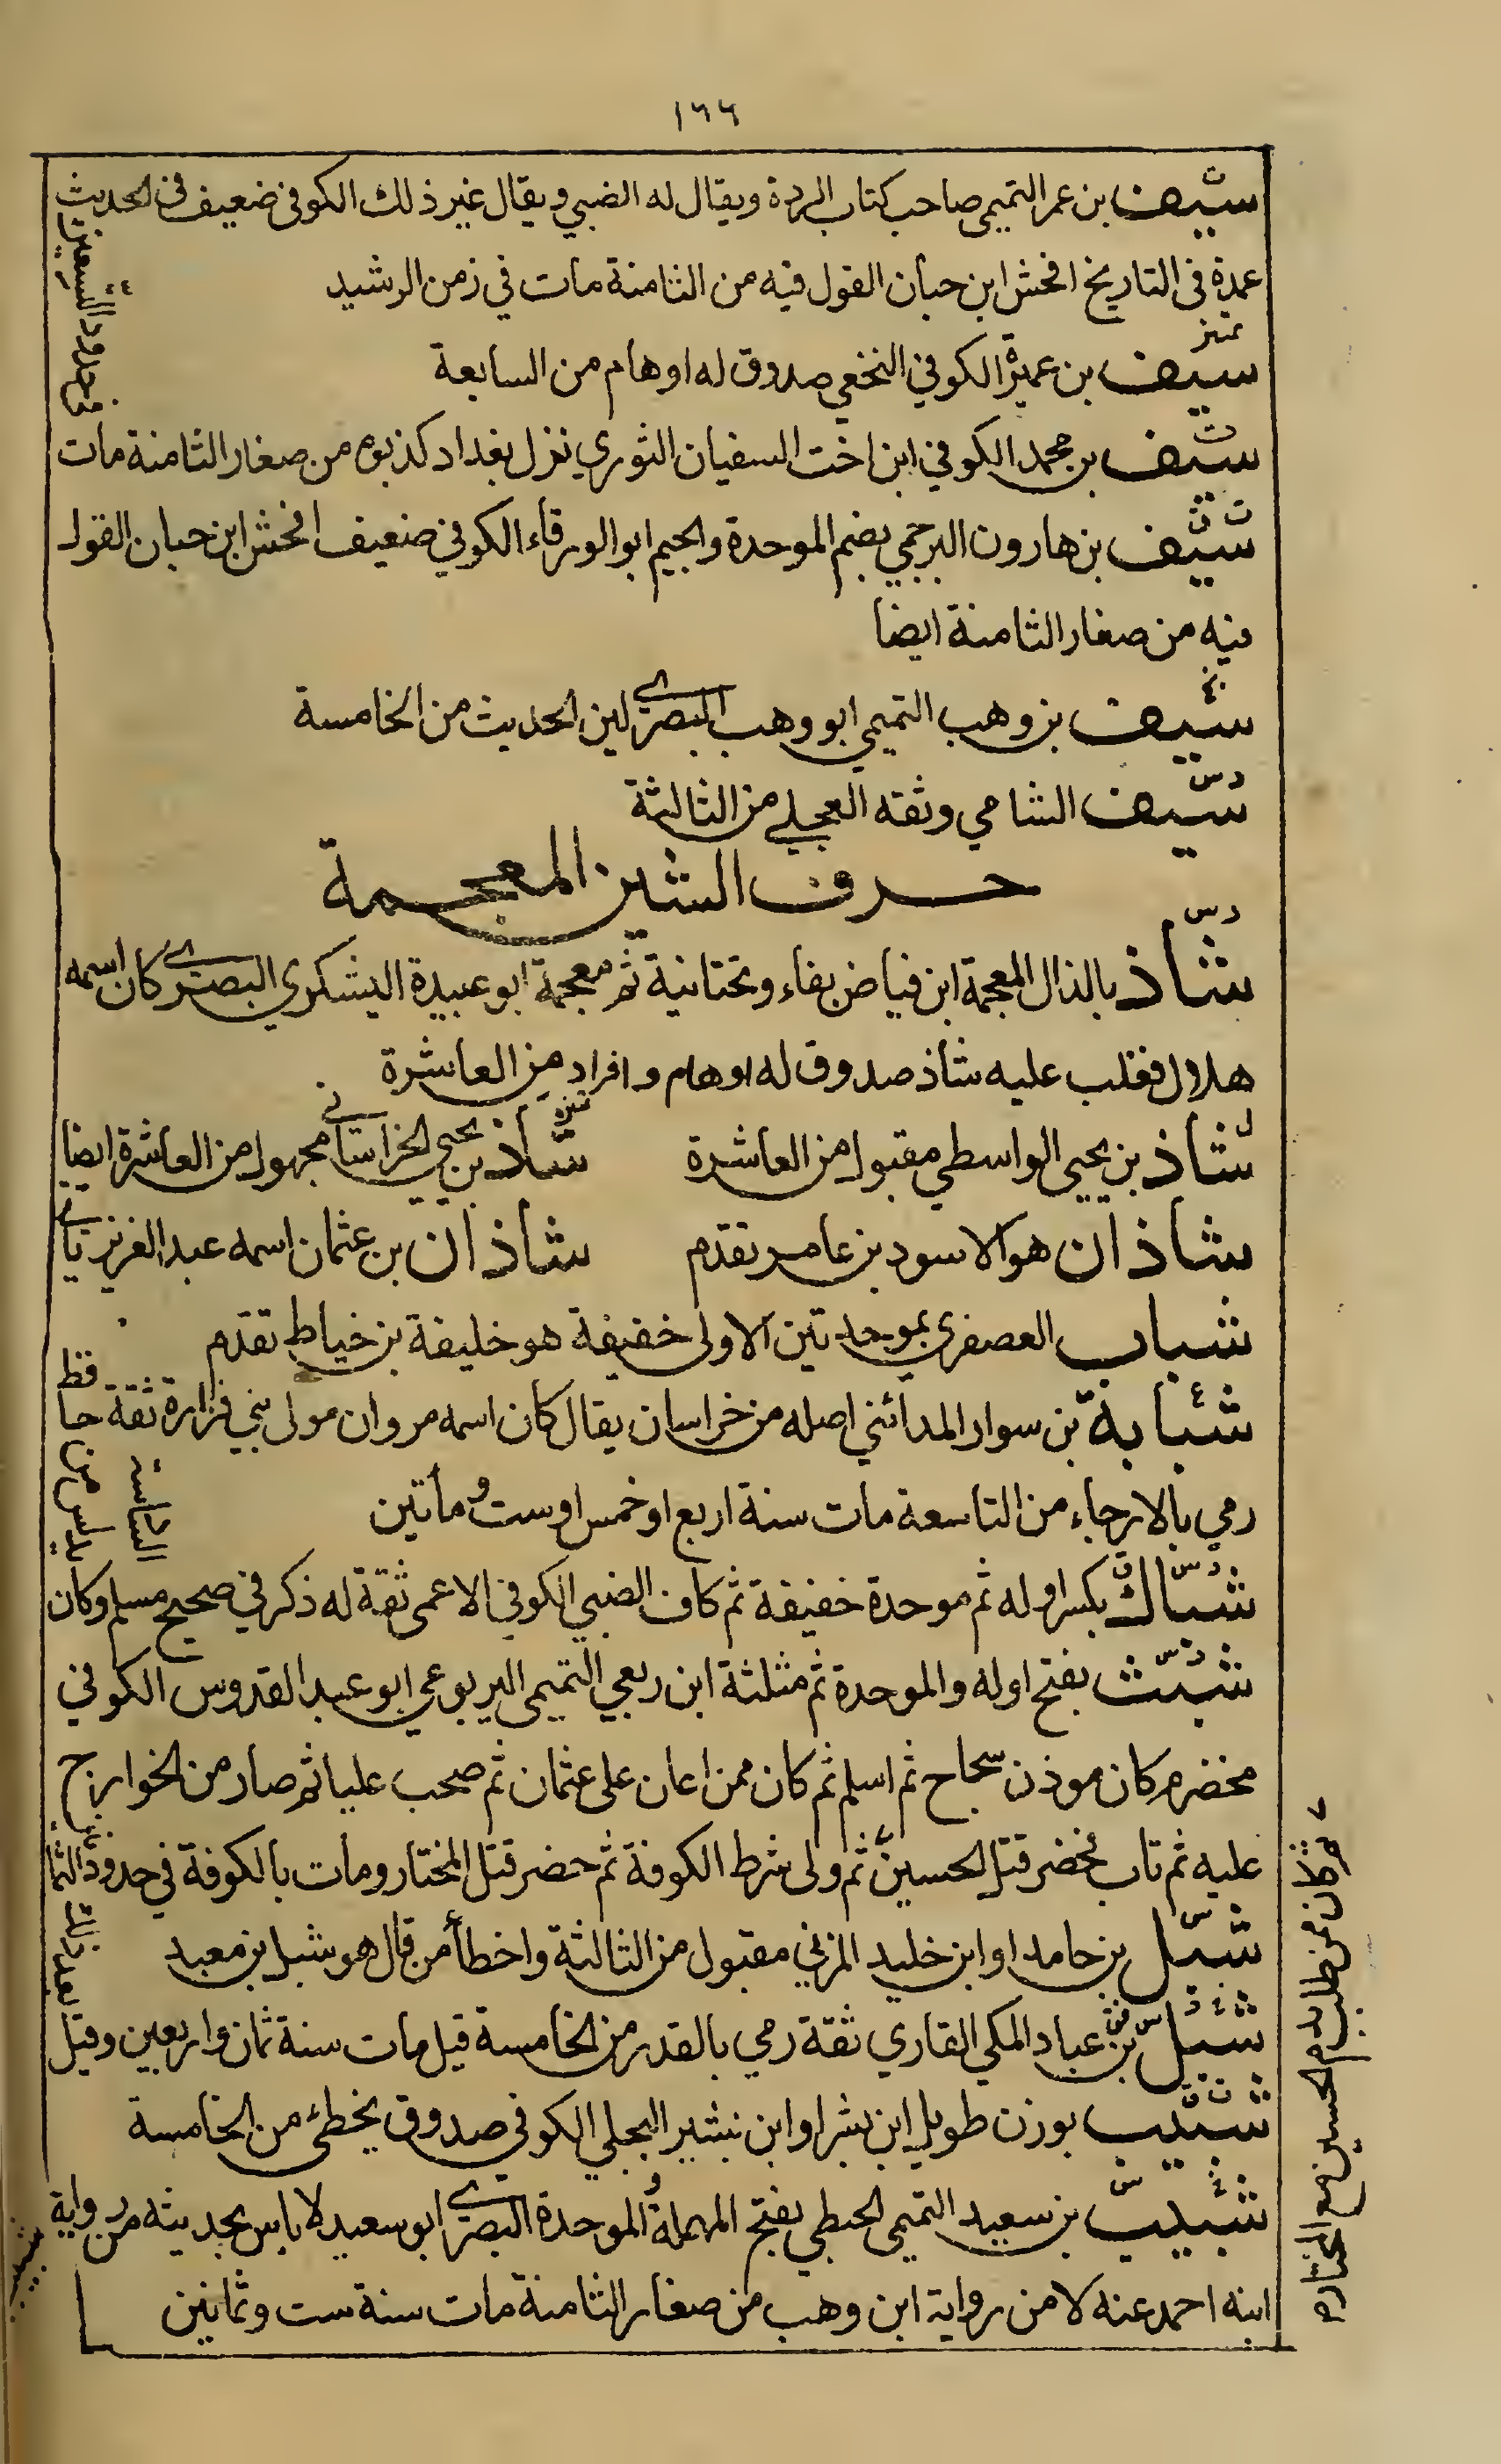 ١٦٦
ت
سيف بن عمر التميمي صاحب كتاب الردة ويقال له الضبي ويقال غير ذلك الكوفي ضعيف في الحديث
عمدة في التاريخ افحش ابن حبان القول فيه من الثامنة مات في زمن الرشيد
تمييز
سيف بن عميرة الكوفي النخعي صدوق له اوهام من السابعة
ت
سيف بن محمد الكوفي ابن اخت السفيان الثوري نزل بغداد كذبوه من صغار الثامنة مات
في حدود التسعين
ت
سيف بن هارون البرجمي بضم الموحدة والجيم ابو الورقاء الكوفي ضعيف افحش ابن حبان القول
فيه من صغار الثامنة ايضا
سيف بن وهب التميمي ابو وهب البصري لين الحديث من الخامسة
د س
سيف الشامي وثقه العجلي من الثالثة
حرف الشين المعجمة
د س
شاذ بالذال المعجمة ابن فياض بفاء وتحتانية ثم معجمة ابو عبيدة اليشكري البصري كان اسمه
هلال فغلب عليه شاذ صدوق له اوهام وافراد من العاشرة
شاذ بن يحيى الواسطي مقبول من العاشرة شاذ بن يحيى الخراساني مجهول من العاشرة ايضا
شاذان هو الاسود بن عامر تقدم شاذان بن عثمان اسمه عبد العزيز ياتي
شباب العصفري بموحدتين الاولى خفيفة هو خليفة بن خياط تقدم
ع
شبابة بن سوار المدائني اصله من خراسان يقال كان اسمه مروان مولى بني فزارة ثقة حافظ
رمي بالارجاء من التاسعة مات سنة اربع او خمس او ست ومأتين
د س ق
شباك بكسر اوله ثم موحدة خفيفة ثم كاف الضبي الكوفي الاعمى ثقة له ذكر في صحيح مسلم وكان
يدلس من السادسة
د س
شبث بفتح اوله والموحدة ثم مثلثة ابن ربعي التميمي اليربوعي ابو عبد القدوس الكوفي
مخضرم كان موذن سجاح ثم اسلم ثم كان ممن اعان على عثمان ثم صحب عليا ثم صار من الخوارج
عليه ثم تاب فحضر قتل الحسين ثم ولى شرط الكوفة ثم حضر قتل المختار ومات بالكوفة في حدود الثمانين
ثم كان ممن طلب بدم الحسين مع المختار م
س
شبل بن حامد او ابن خليد المزني مقبول من الثالثة واخطأ من قال هو شبل بن معبد
خ د س فق
شبل بن عباد المكي القاري ثقة رمي بالقدر من الخامسة قيل مات سنة ثمان واربعين وقيل
بعد ذلك
ت ق
شبيب بوزن طويل ابن بشر او ابن بشير البجلي الكوفي صدوق يخطئ من الخامسة
خ س
شبيب بن سعيد التميمي الحبطي بفتح المهملة والموحدة البصري ابو سعيد لا باس بحديثه من رواية
ابنه احمد عنه لا من رواية ابن وهب من صغار الثامنة مات سنة ست وثمانين
شبيب